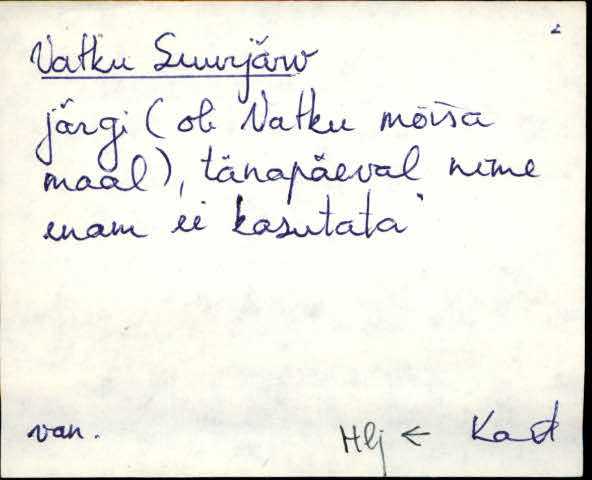 2
Vatku Suurjärv
järgi (oli Vatku mõisa
maal), tänapäeval nime
enam ei kasutata"
van. Hlj ← Kad